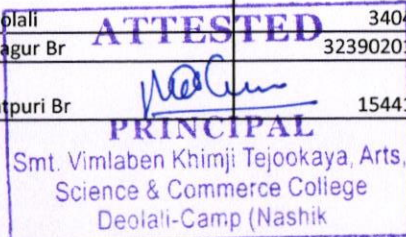 olali 3404
agur Br 32390201
ATTESTED
tpuri Br 15441
PRINCIPAL
Smt. Vimlaben Khimji Tejookaya, Arts,
Science & Commerce College
Deolali-Camp (Nashik